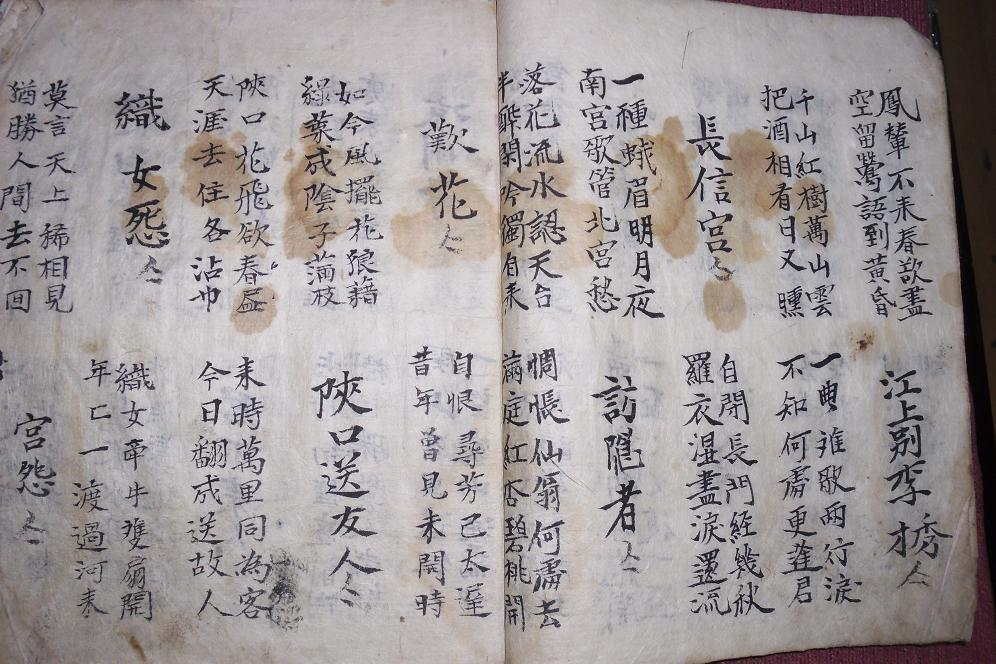 鳳輦不来春欲盡
空留鶯語到黃昏
江上別李秀才
千山紅樹萬山雲
把酒相看日又曛
一曲離歌兩行淚
不知何處更逢君
長信宮
自閉長門経幾秋
羅衣濕盡淚還流
一種蛾眉明月夜
南宮歌管北宮愁
訪隱者
落花流水認天台
半醉閑吟獨自来
惆悵仙翁何處去
滿庭紅杏碧桃開
歎花
自恨尋芳已太遲
昔年曾見未開時
如今風擺花狼藉
綠葉成陰子滿枝
陝口送友人
陝口花飛欲春盡
天涯去住各沾巾
来時萬里同為客
今日翻成送故人
織女怨
織女牽牛雙扇開
年匕一渡過河来
莫言天上稀相見
猶勝人間去不回
宮怨